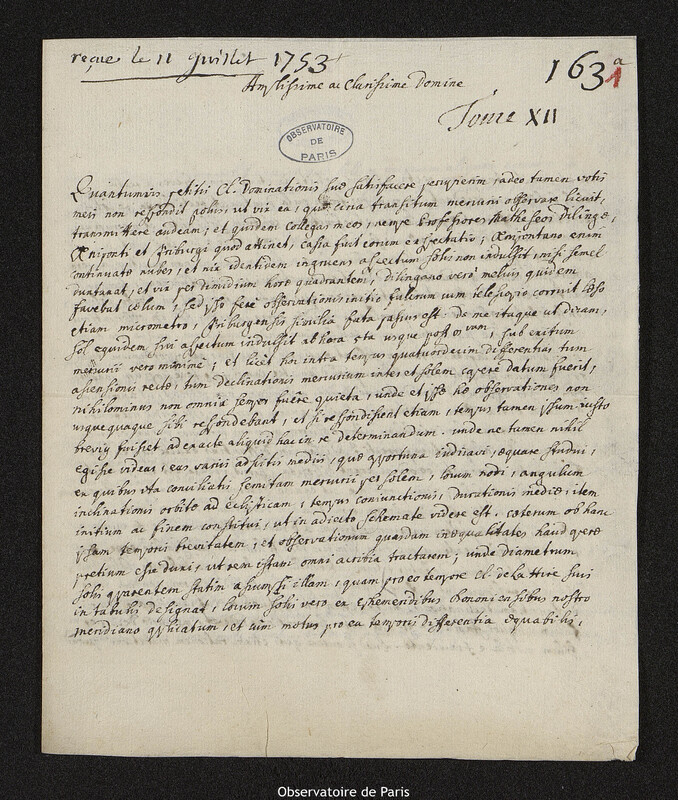 reçue le 11 Juillet 1753
163 a
1
Amplissime ac Clarissime Domine
Tome XII
OBSERVATOIRE
DE
PARIS
Quantumvis petitis Cl. Dominationis suæ satisfacere percupierim, adeo tamen votis
meis non respondit polus, ut vix ea, quæ circa transitum mercurii observare licuit,
transmittere audeam; et quidem collegas meos, nempe Professores Matheseos Dilingæ,
Æniponti et Friburgi quod attinet, cassa fuit eorum expectatio; Ænipontano enim
continuatæ nubes, et nix identidem ingruens aspectum solis non indulsit, nisi semel
duntaxat, et vix per dimidium horæ quadrantem; Dilingano vero melius quidem
favebat cœlum, sed ipso fere observationis initio fulcrum cum telescopio corruit læso
etiam micrometro, Friburgensis similia fata passus est. de me itaque ut dicam,
sol equidem sui aspectum indulsit ab hora 8va usque post 10 mam, sub exitum
mercurii vero minime; et licet hoc intra tempus quatuordecim differentias tum
ascensionis rectæ, tum declinationis mercurium inter et solem capere datum fuerit,
nihilominus non omnia semper fuêre quieta, unde et ipsæ hæ observationes non
usquequaque sibi respondebant, et si respondissent etiam, tempus tamen ipsum justo
brevius fuisset ad exacte aliquid hac in re determinandum. unde ne tamen nihil
egisse videar, eas variis adhibitis mediis, quæ opportuna judicavi, æquare studui,
ex quibus ita conciliatis semitam mercurii per solem, locum nodi, angulum
inclinationis orbitæ ad eclipticam, tempus conjunctionis, durationis mediæ, item
initium ac finem constitui, ut in adjecto schemate videre est. cæterum ob hanc
ipsam temporis brevitatem, et observationum quasdam inæqualitates haud operæ
pretium esse duxi, ut rem istam omni acribia tractarem; unde diametrum
solis apparentem statim assumpsi illam, quam pro eo tempore Cl. de la Hire suis
in tabulis designat, locum solis vero ex Ephemeridibus Bononiensibus nostro
meridiano applicatum, et cum motus pro ea temporis differentia æquabilis,
Observatoire de Paris